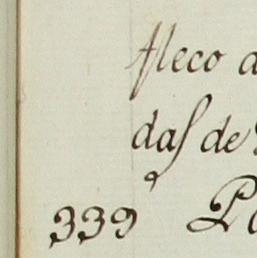 fleco
das de
339